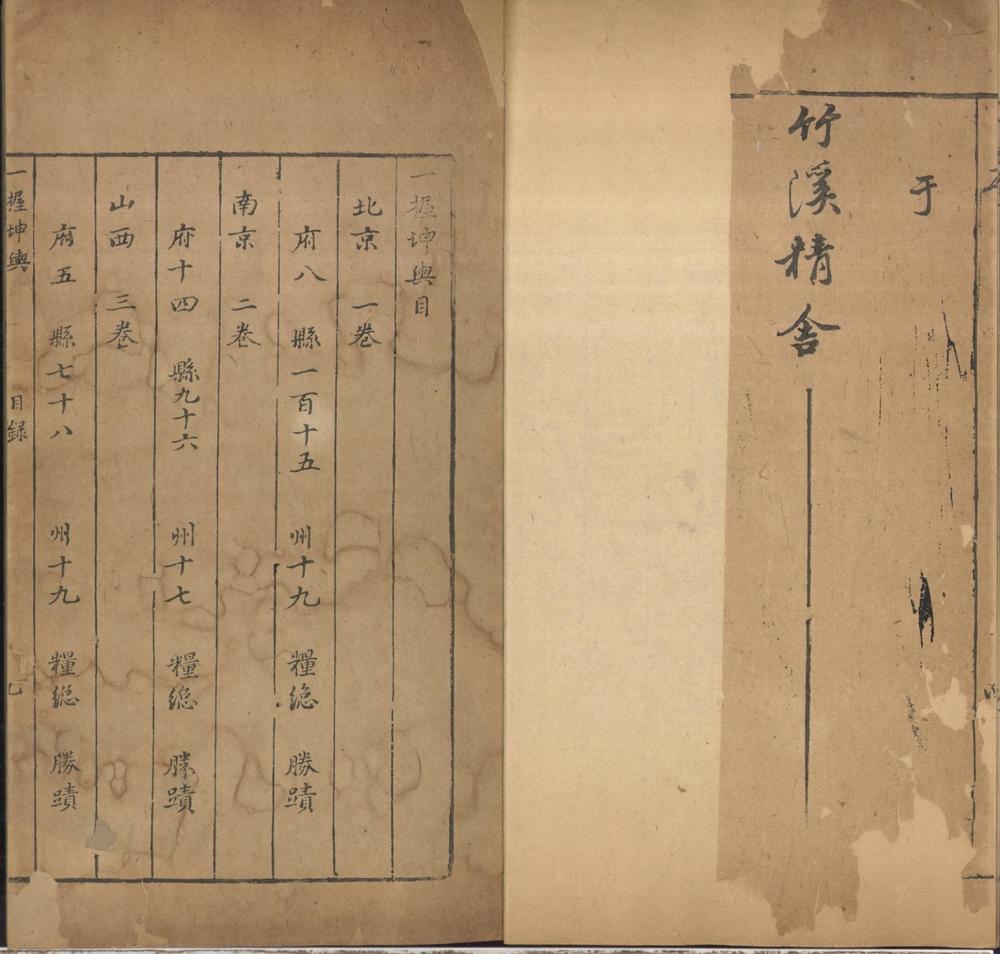 于
竹溪精舍
一握坤輿目
北京 一卷
府八 縣一百十五 州十九 糧総 勝蹟
南京 二卷
府十四 縣九十六 州十七 糧総 勝蹟
山西 三卷
府五 縣七十八 州十九 糧総 勝蹟
一握坤輿 目錄